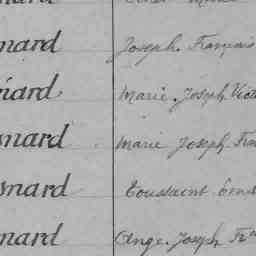 nard Joseph François
nard Marie Joseph Vict
snard Marie Joseph Fran
snard Toussaint
nard Ange Joseph